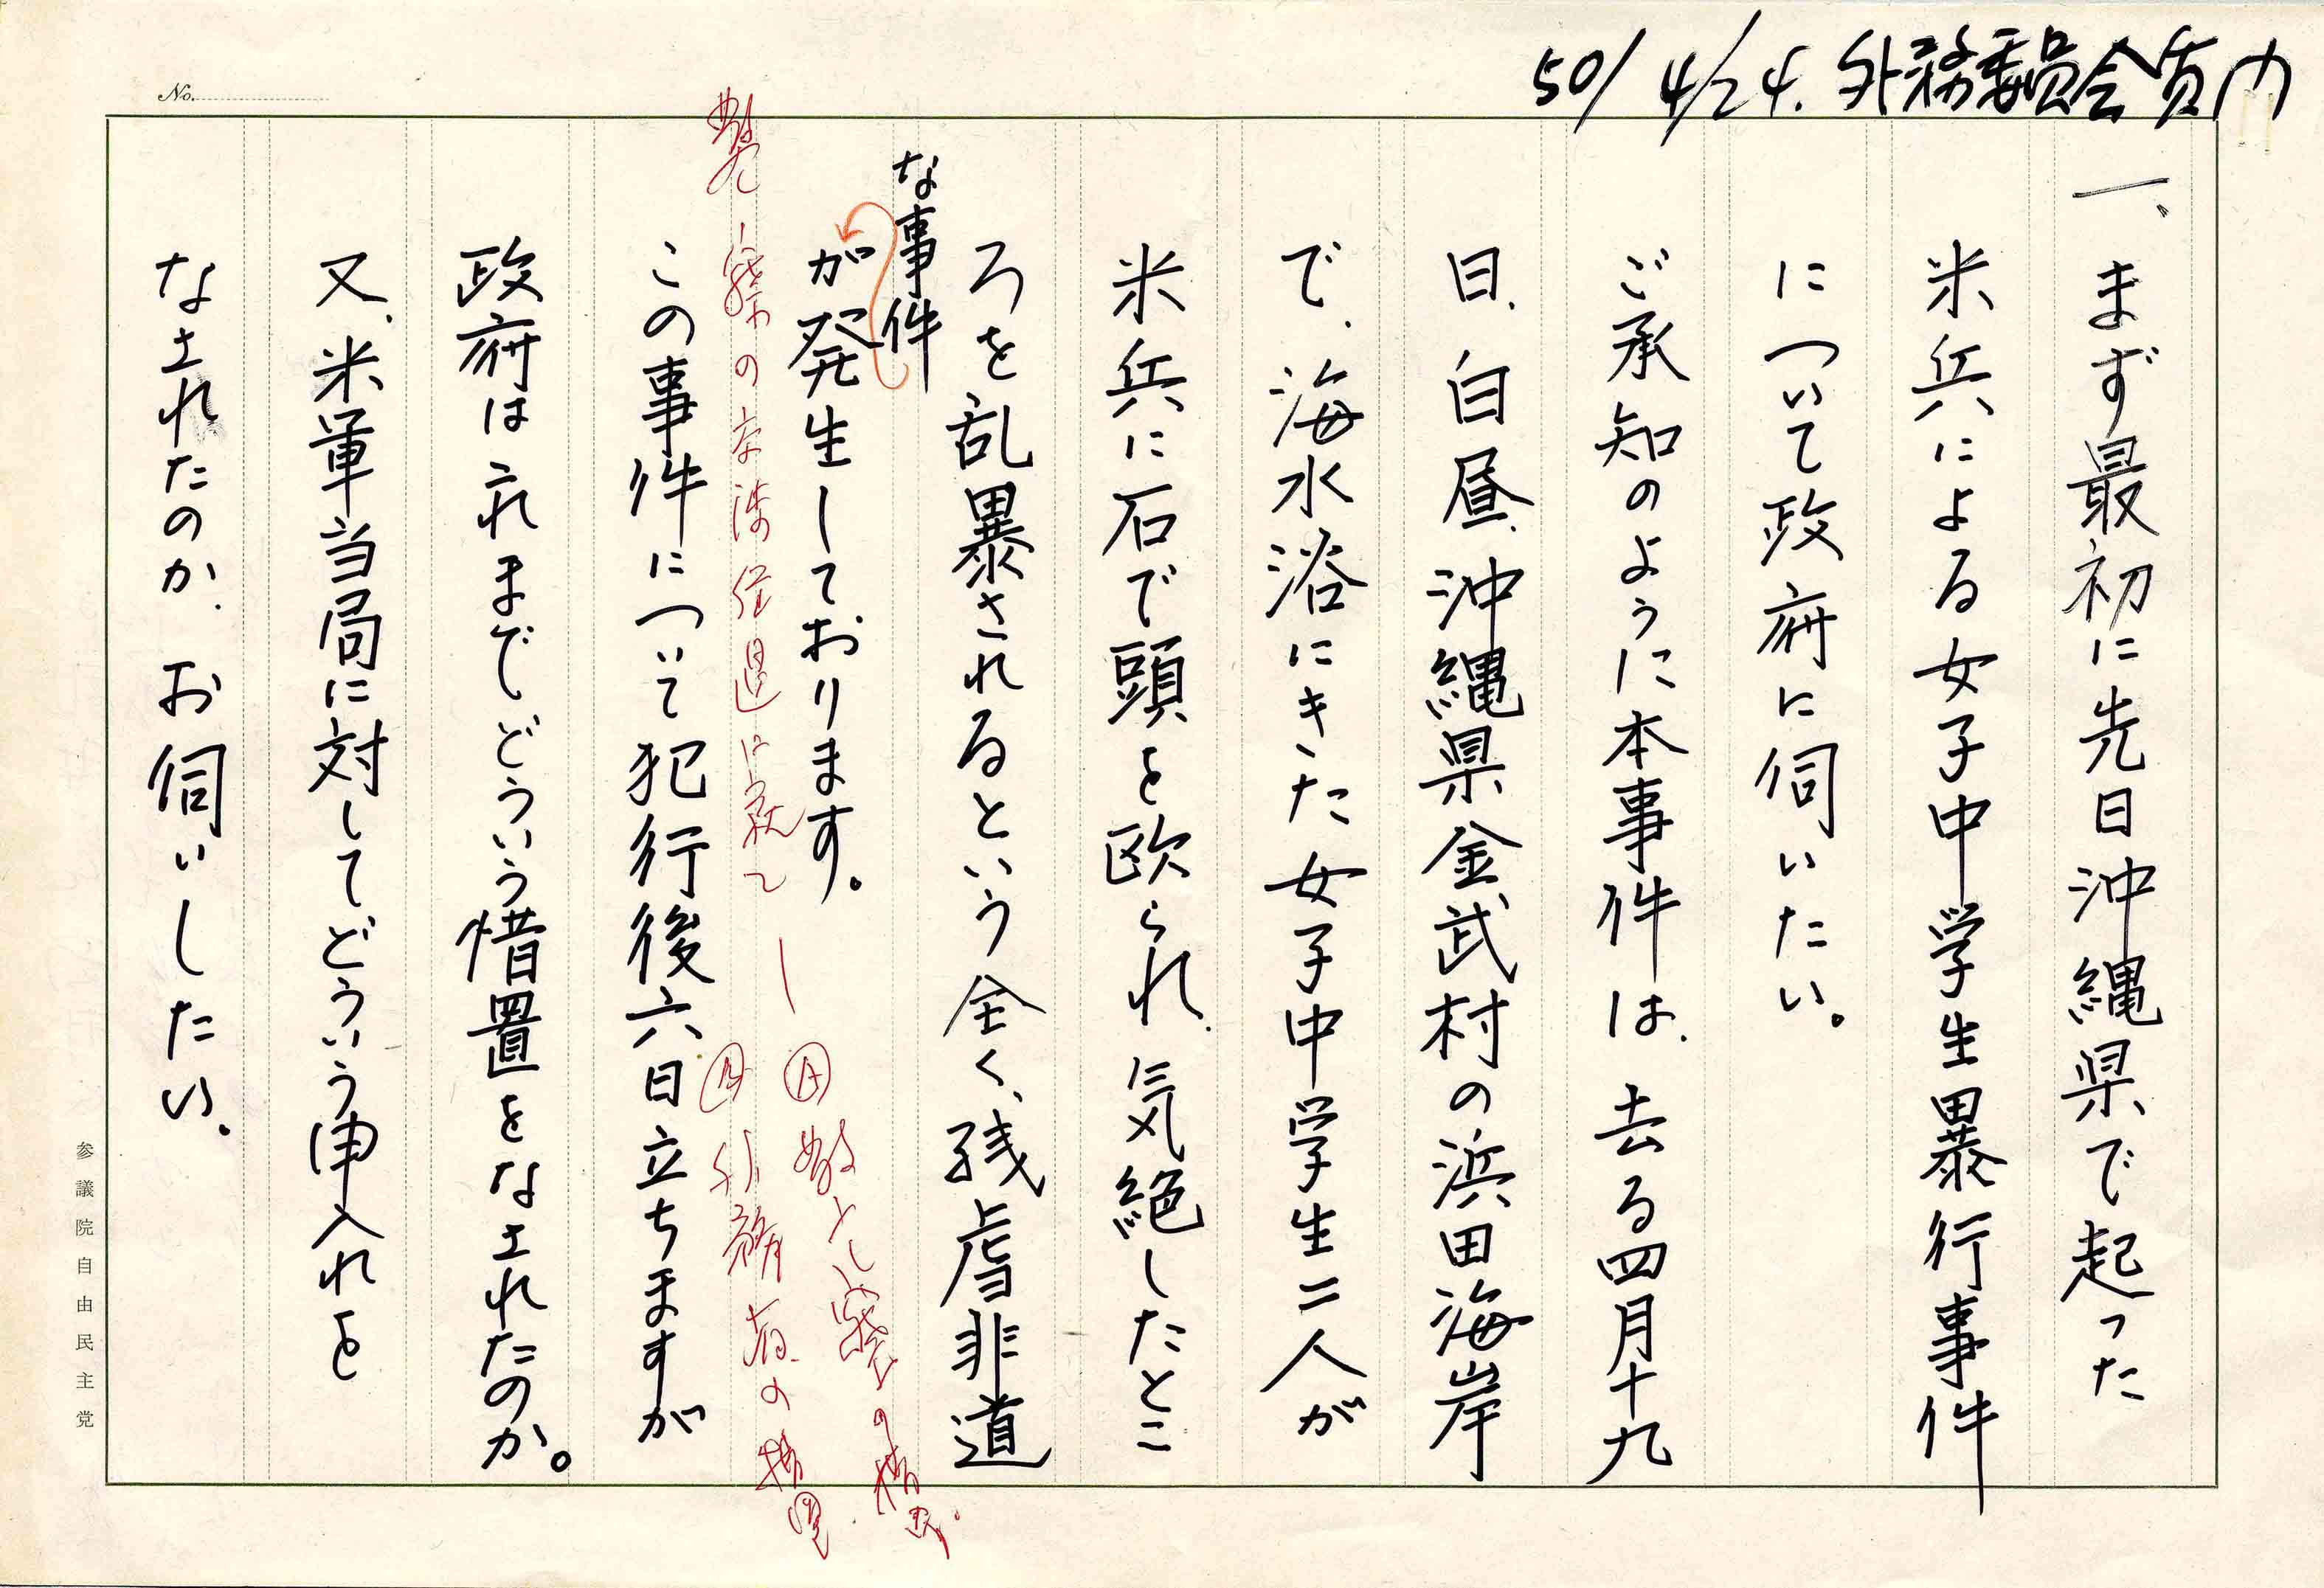 50/4/24. 外務委員会質問
一、まず最初に先日沖縄県で起った
米兵による女子中学生暴行事件
について政府に伺いたい。
ご承知のように本事件は、去る四月十九
日、白昼、沖縄県金武村の浜田海岸
で、海水浴にきた女子中学生二人が
米兵に石で頭を殴られ、気絶したとこ
ろを乱暴されるという全く、残虐非道
な事件
が発生しております。
この事件について犯行後六日立ちますが
政府はこれまでどういう措置をなされたのか。
又、米軍当局に対してどういう申入れを
なされたのか、お伺いしたい。
No.
参議院自由民主党